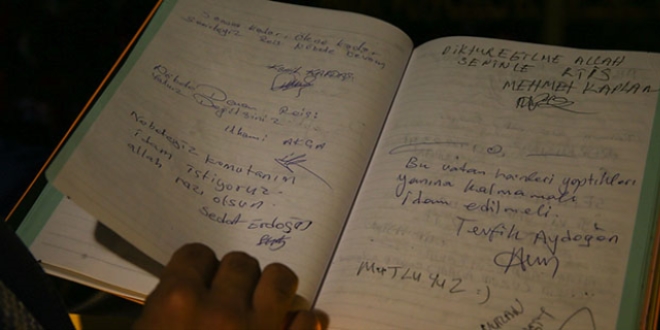 Sonuna kadar ölene kadar
Nöbete Devam
Reisi
Yalnız Değilsiniz
ilhami AKÇA
Nöbetteyiz komutanım
idam istiyoruz
allah razı olsun
Sedat Erdoğan
DİK DUR EĞİLME ALLAH
SENİNLE REİS
MEHMET KAPLAN
Bu vatan hainleri yaptıkları
yanına kalmamalı
idam edilmeli.
Tevfik Aydoğan
MUTLUYUZ :)